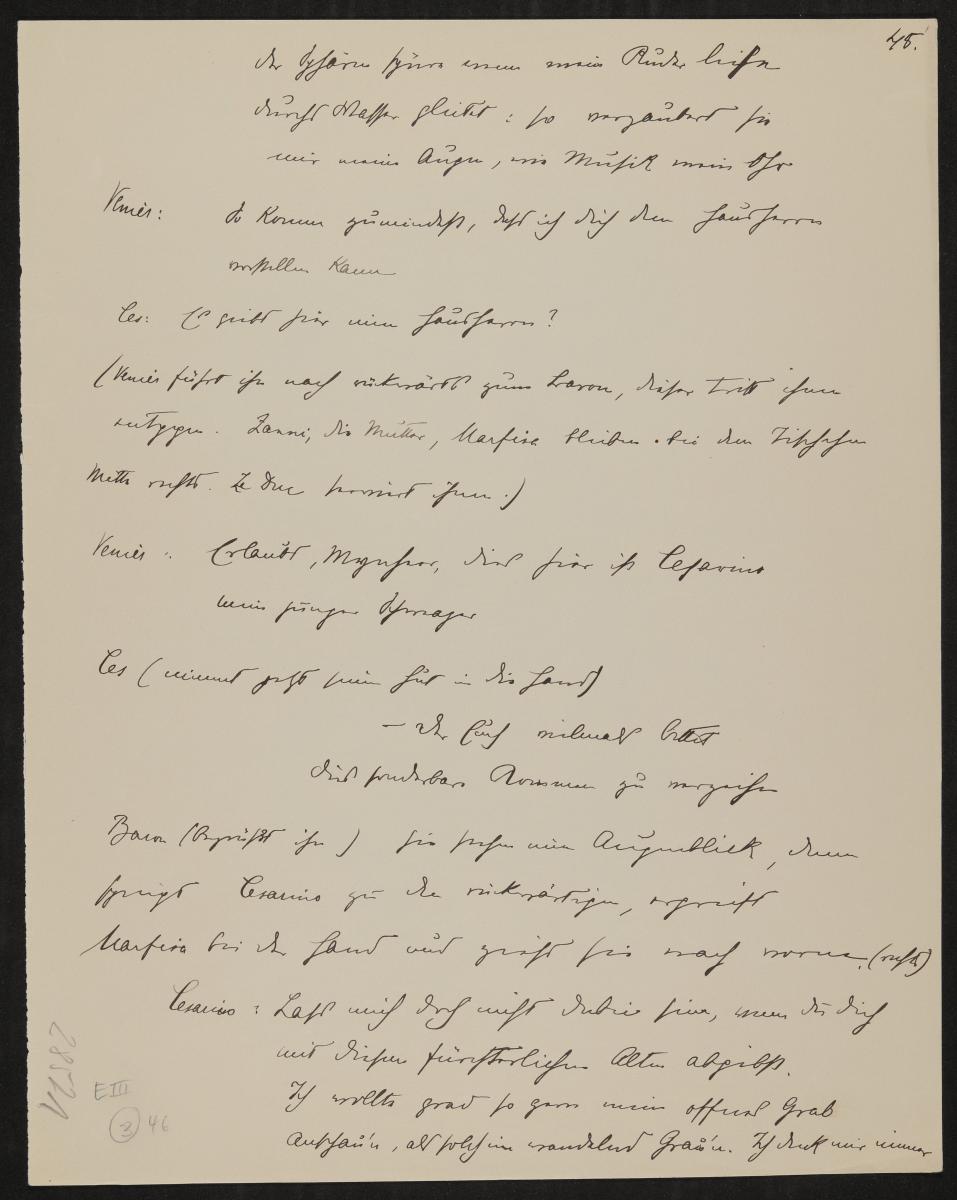 45.
der Sphären spüre wenn mein Ruder leise
durchs Wasser gleitet: so verzaubert sie
mir meine Augen, wie Musik mein Ohr
Venier: So komm zumindest, dass ich dich dem Hausherrn
vorstellen kann
Ces: Es giebt hier einen Hausherrn?
(Venier führt ihn nach rückwärts zum Baron, dieser tritt ihnen
entgegen. Zanni, die Mutter, Marfisa bleiben bei dem Tischchen
Mitte rechts. Le Duc serviert ihnen.)
Venier: Erlaubt, Mynheer, dies hier ist Cesarino
mein junger Schwager
Ces (nimmt jetzt seinen Hut in die Hand)
– der Euch vielmals bittet
dies sonderbare Kommen zu verzeihen
Baron (begrüßt ihn) sie stehen einen Augenblick, dann
springt Cesarino zu den rückwärtigen, ergreift
Marfisa bei der Hand und zieht sie nach vorne. (rechts)
Cesarino: Lass mich doch nicht dabei sein, wenn du dich
mit diesem fürchterlichen Alten abgibst.
Ich wollte grad so gern mein offnes Grab
anschau'n, als solch ein wandelnd Grau'n. Ich denk mir immer
E III
(2) 46